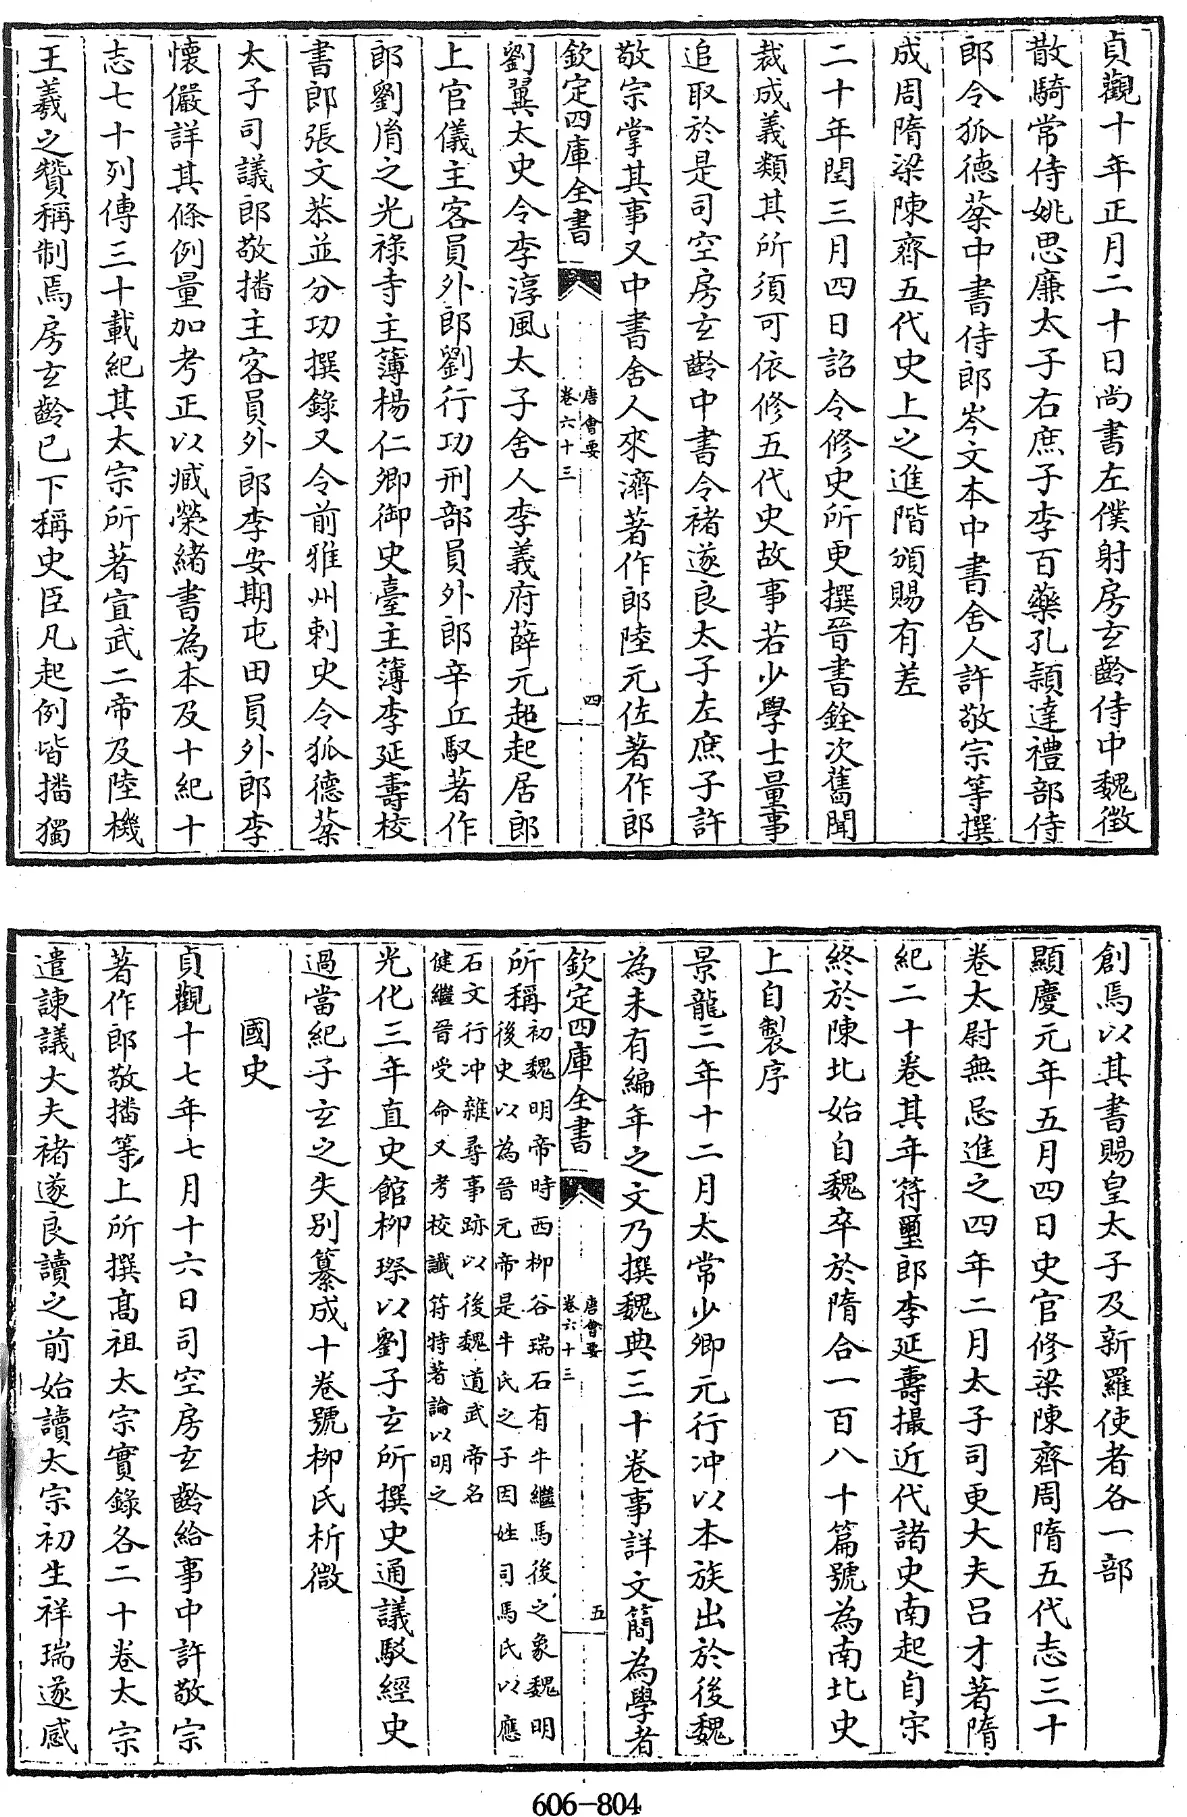 貞觀十年正月二十日尚書左僕射房玄齡侍中魏徵
散騎常侍姚思廉太子右庶子李百藥孔穎達禮部侍
郎令狐德棻中書侍郎岑文本中書舍人許敬宗等撰
成周隋梁陳齊五代史上之進階頒賜有差
二十年閏三月四日詔令修史所更撰晉書銓次舊聞
裁成義類其所須可依修五代史故事若少學士量事
追取於是司空房玄齡中書令褚遂良太子左庶子許
敬宗掌其事又中書舍人來濟著作郎陸元佐著作郎
欽定四庫全書
唐會要
卷六十三
四
劉翼太史令李淳風太子舍人李義府薛元超起居郎
上官儀主客員外郎劉行功刑部員外郎辛丘馭著作
郎劉㣧之光祿寺主簿楊仁卿御史臺主簿李延壽校
書郎張文恭並分功撰錄又令前雅州刺史令狐德棻
太子司議郎敬播主客員外郎李安期屯田員外郎李
懷儼詳其條例量加考正以臧榮緒書為本及十紀十
志七十列傳三十載紀其太宗所著宣武二帝及陸機
王羲之贊稱制焉房玄齡已下稱史臣凡起例皆播獨
創焉以其書賜皇太子及新羅使者各一部
顯慶元年五月四日史官修梁陳齊周隋五代志三十
卷太尉無忌進之四年二月太子司更大夫呂才著隋
紀二十卷其年符璽郎李延壽撮近代諸史南起自宋
終於陳北始自魏卒於隋合一百八十篇號為南北史
上自製序
景龍二年十二月太常少卿元行冲以本族出於後魏
為未有編年之文乃撰魏典三十卷事詳文簡為學者
欽定四庫全書
唐會要
卷六十三
五
所稱
初魏明帝時西柳谷瑞石有牛繼馬後之象魏明
後史以為晉元帝是牛氏之子因姓司馬氏以應
石文行冲雜尋事跡以後魏道武帝名
健繼晉受命又考校讖符特著論以明之
光化三年直史館柳璨以劉子玄所撰史通議駁經史
過當紀子玄之失別纂成十卷號柳氏析微
國史
貞觀十七年七月十六日司空房玄齡給事中許敬宗
著作郎敬播等上所撰高祖太宗實錄各二十卷太宗
遣諫議大夫褚遂良讀之前始讀太宗初生祥瑞遂感
606-804